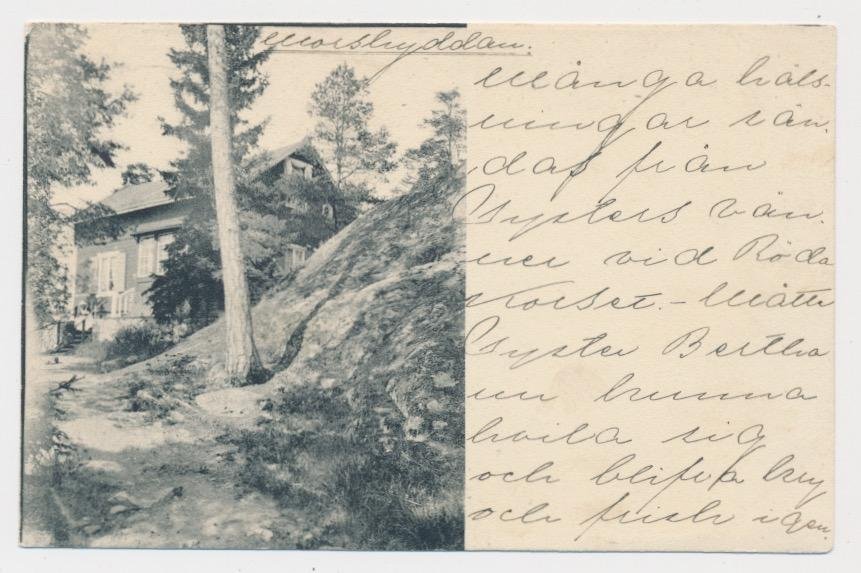 Morshyddan.
Många häls-
ningar sän-
das från
Systers vän-
ner vid Röda
Korset. - Måtte
Syster Bertha
nu kunna
hvila sig
och blifva kry
och frisk igen.